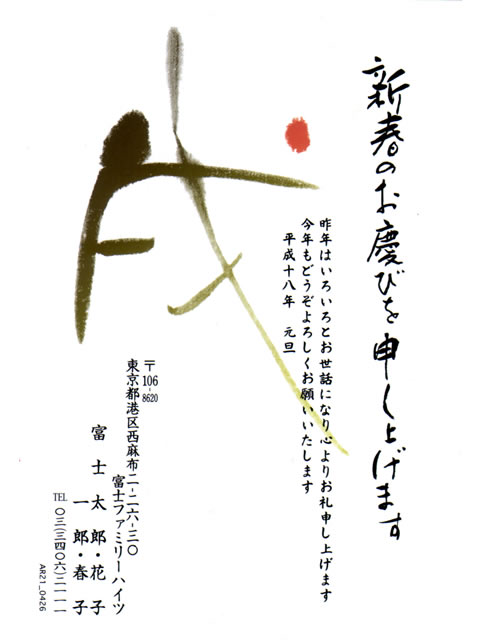 新春のお慶びを申し上げます
昨年はいろいろとお世話になり心よりお礼申し上げます
今年もどうぞよろしくお願いいたします
平成十八年　元旦
戌
〒106-8620
東京都港区西麻布二-二六-三〇
富士ファミリーハイツ
富士太郎・花子
一郎・春子
TEL 〇三(三四〇六)二一一一
AR21_0426